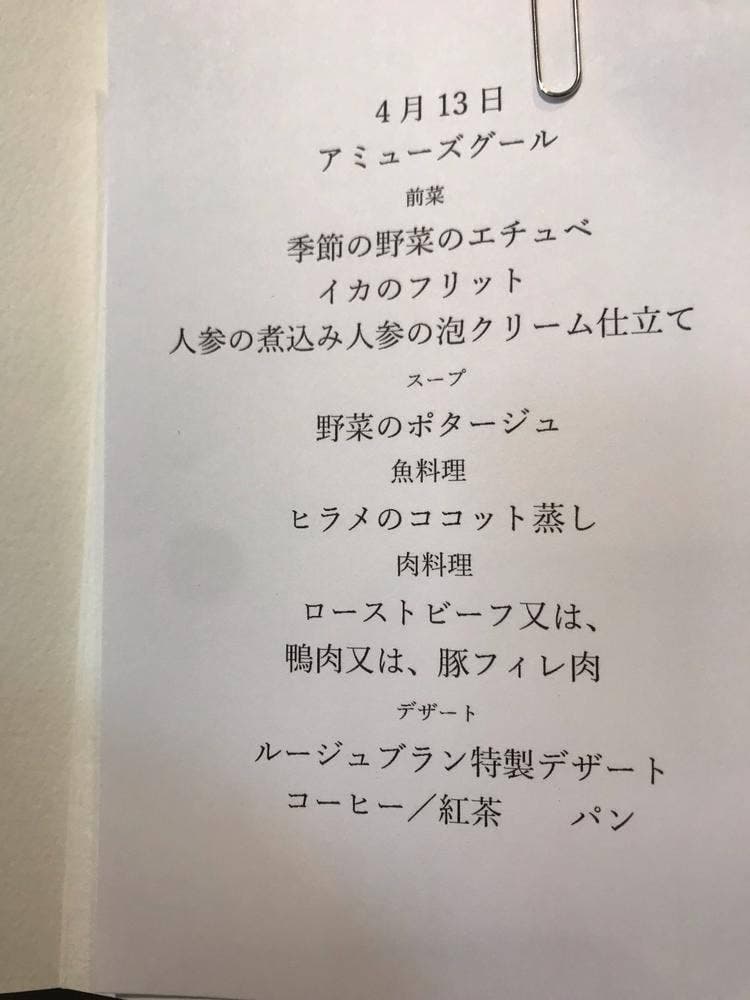 4月13日
アミューズグール
前菜
季節の野菜のエチュベ
イカのフリット
人参の煮込み人参の泡クリーム仕立て
スープ
野菜のポタージュ
魚料理
ヒラメのココット蒸し
肉料理
ローストビーフ又は、
鴨肉又は、豚フィレ肉
デザート
ルージュブラン特製デザート
コーヒー／紅茶　　パン